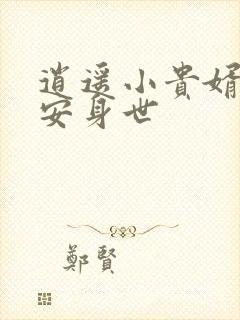 逍遥小貴婿
安身世
鄭賢